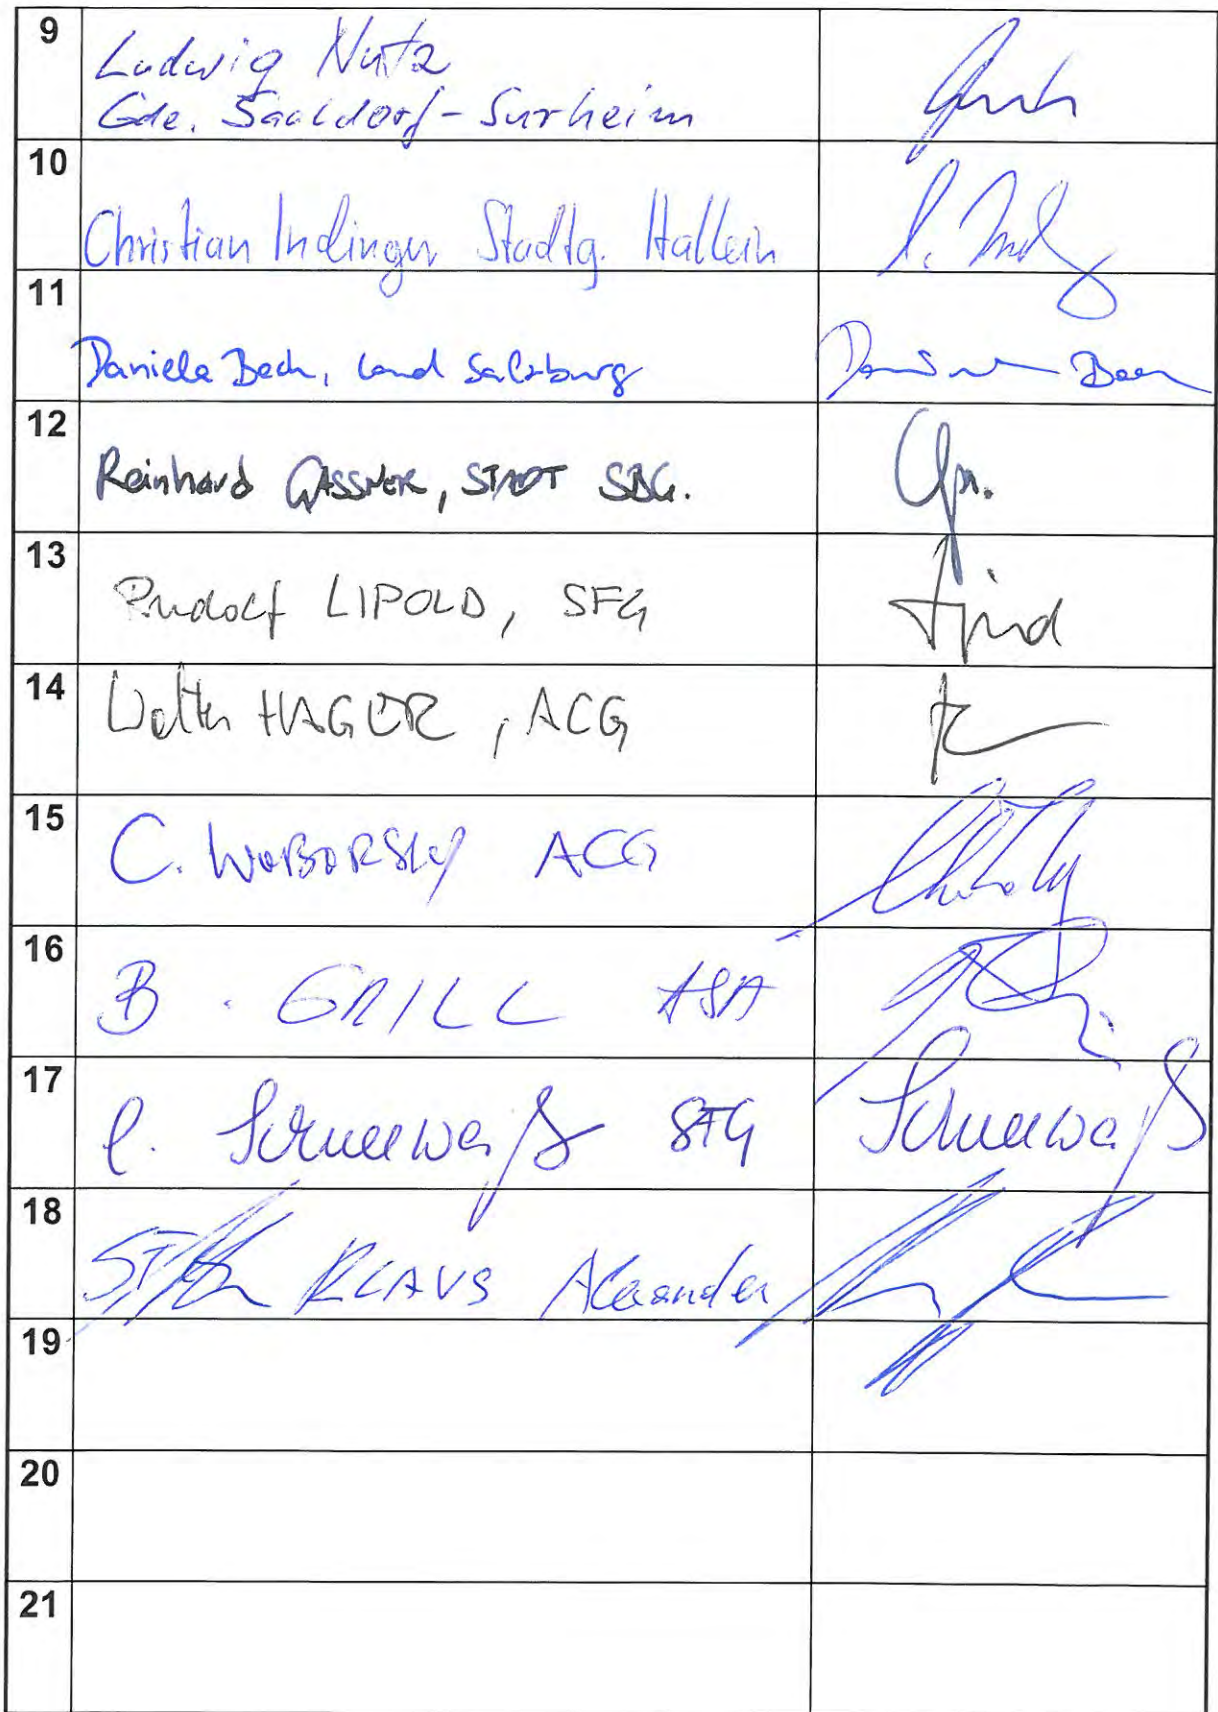 9
Ludwig Nutz
Gde. Saaldorf-Surheim
10
Christian Indinger Stadtg. Hallein
11
Daniela Bech, Land Salzburg
12
Reinhard GASSNER, STADT SBG.
13
Rudolf LIPOLD, SFG
14
Walter HAGER, ACG
15
C. WOBORSKY ACG
16
B. GRILL ASA
17
C. Schneeweiß SFG Schneeweiß
18
KLAUS Alexander
19
20
21